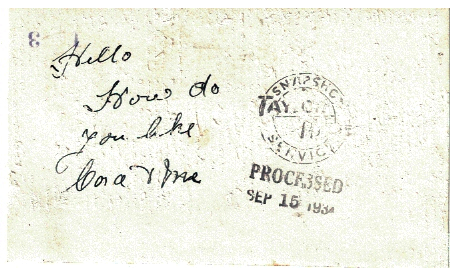 Hello
How do
you like
Cora & me
SNAPSHOT
TAYLOR
SERVICE
PROCESSED
SEP 15 193